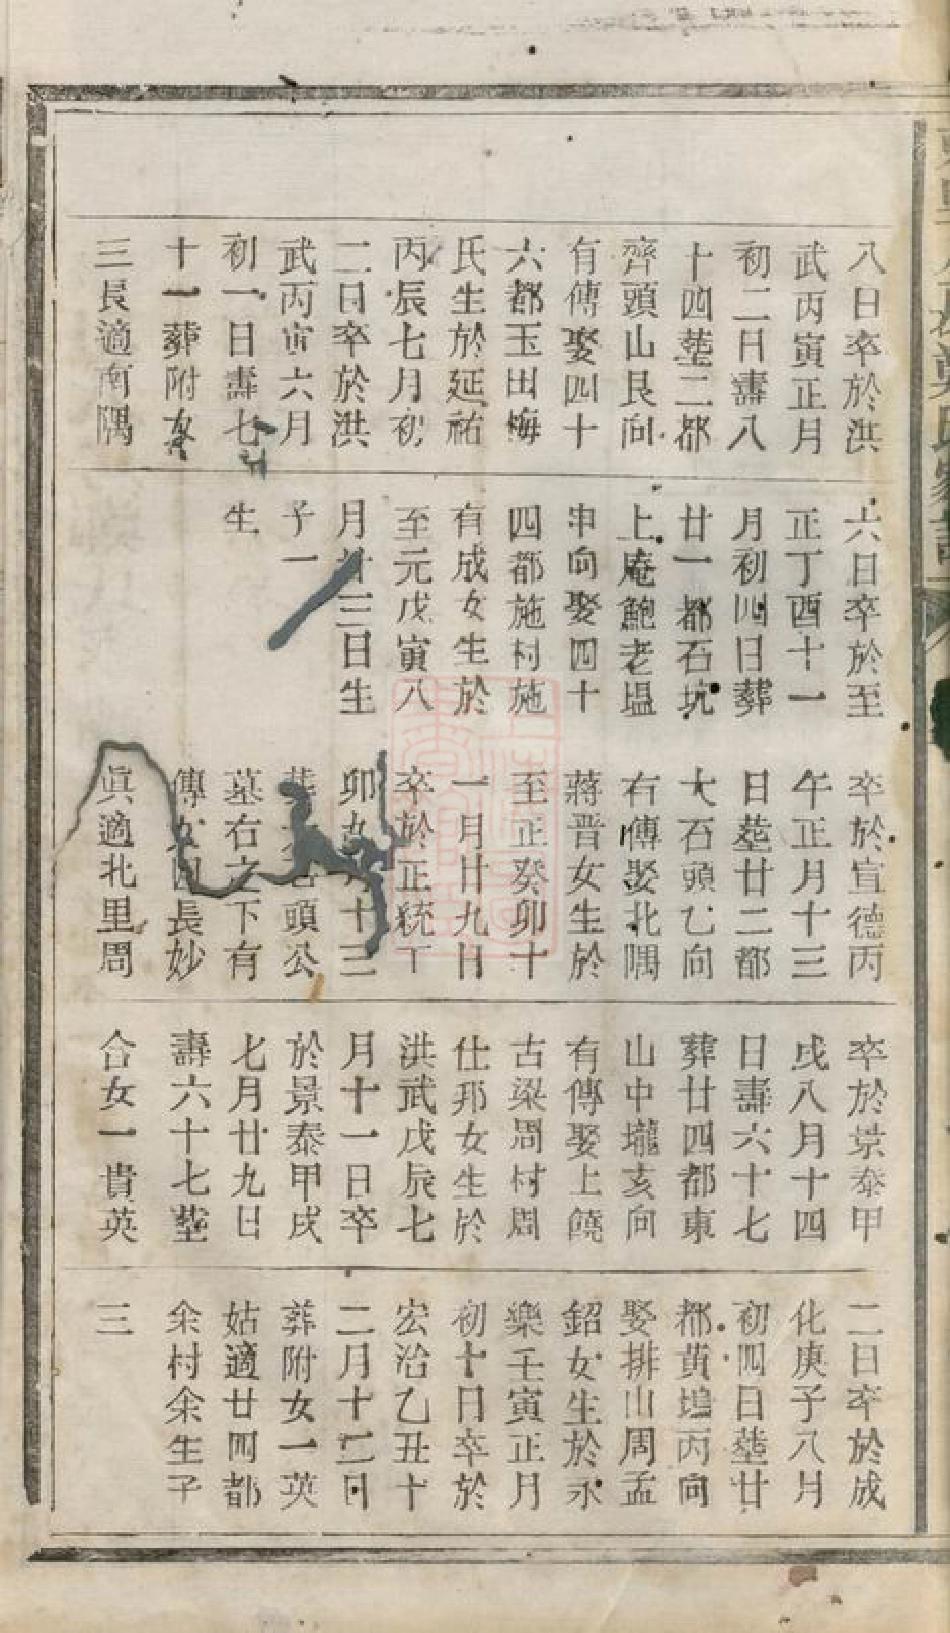 八日卒於洪
武丙寅正月
初二日壽八
十四塟二都
齊頭山艮向
有傳娶四十
六都玉田梅
氏生於延祐
丙辰七月初
二日卒於洪
武丙寅六月
初一日壽七
十一葬附女
三長適南隅
六日卒於至
正丁酉十一
月初四日葬
廿一都石坑
上庵鮑老塭
申向娶四十
四都施村施
有成女生於
至元戊寅八
月廿三日生
子一
生
卒於宣德丙
午正月十三
日塟廿二都
大石頭乙向
右傳娶北隅
蔣晋女生於
至正癸卯十
一月廿九日
卒於正統丁
卯九月十三
頭公
墓右之下有
傳女四長妙
眞適北里周
卒於景泰甲
戌八月十四
日壽六十七
葬廿四都東
山中壠亥向
有傳娶上饒
古梁周村周
仕邦女生於
洪武戊辰七
月十一日卒
於景泰甲戌
七月廿九日
壽六十七塟
合女一貴英
二日卒於成
化庚子八月
初四日塟廿
都黄塢丙向
娶排山周孟
鉊女生於永
樂壬寅正月
初十日卒於
宏治乙丑十
二月十二日
葬附女一英
姑適廿四都
余村余生子
三